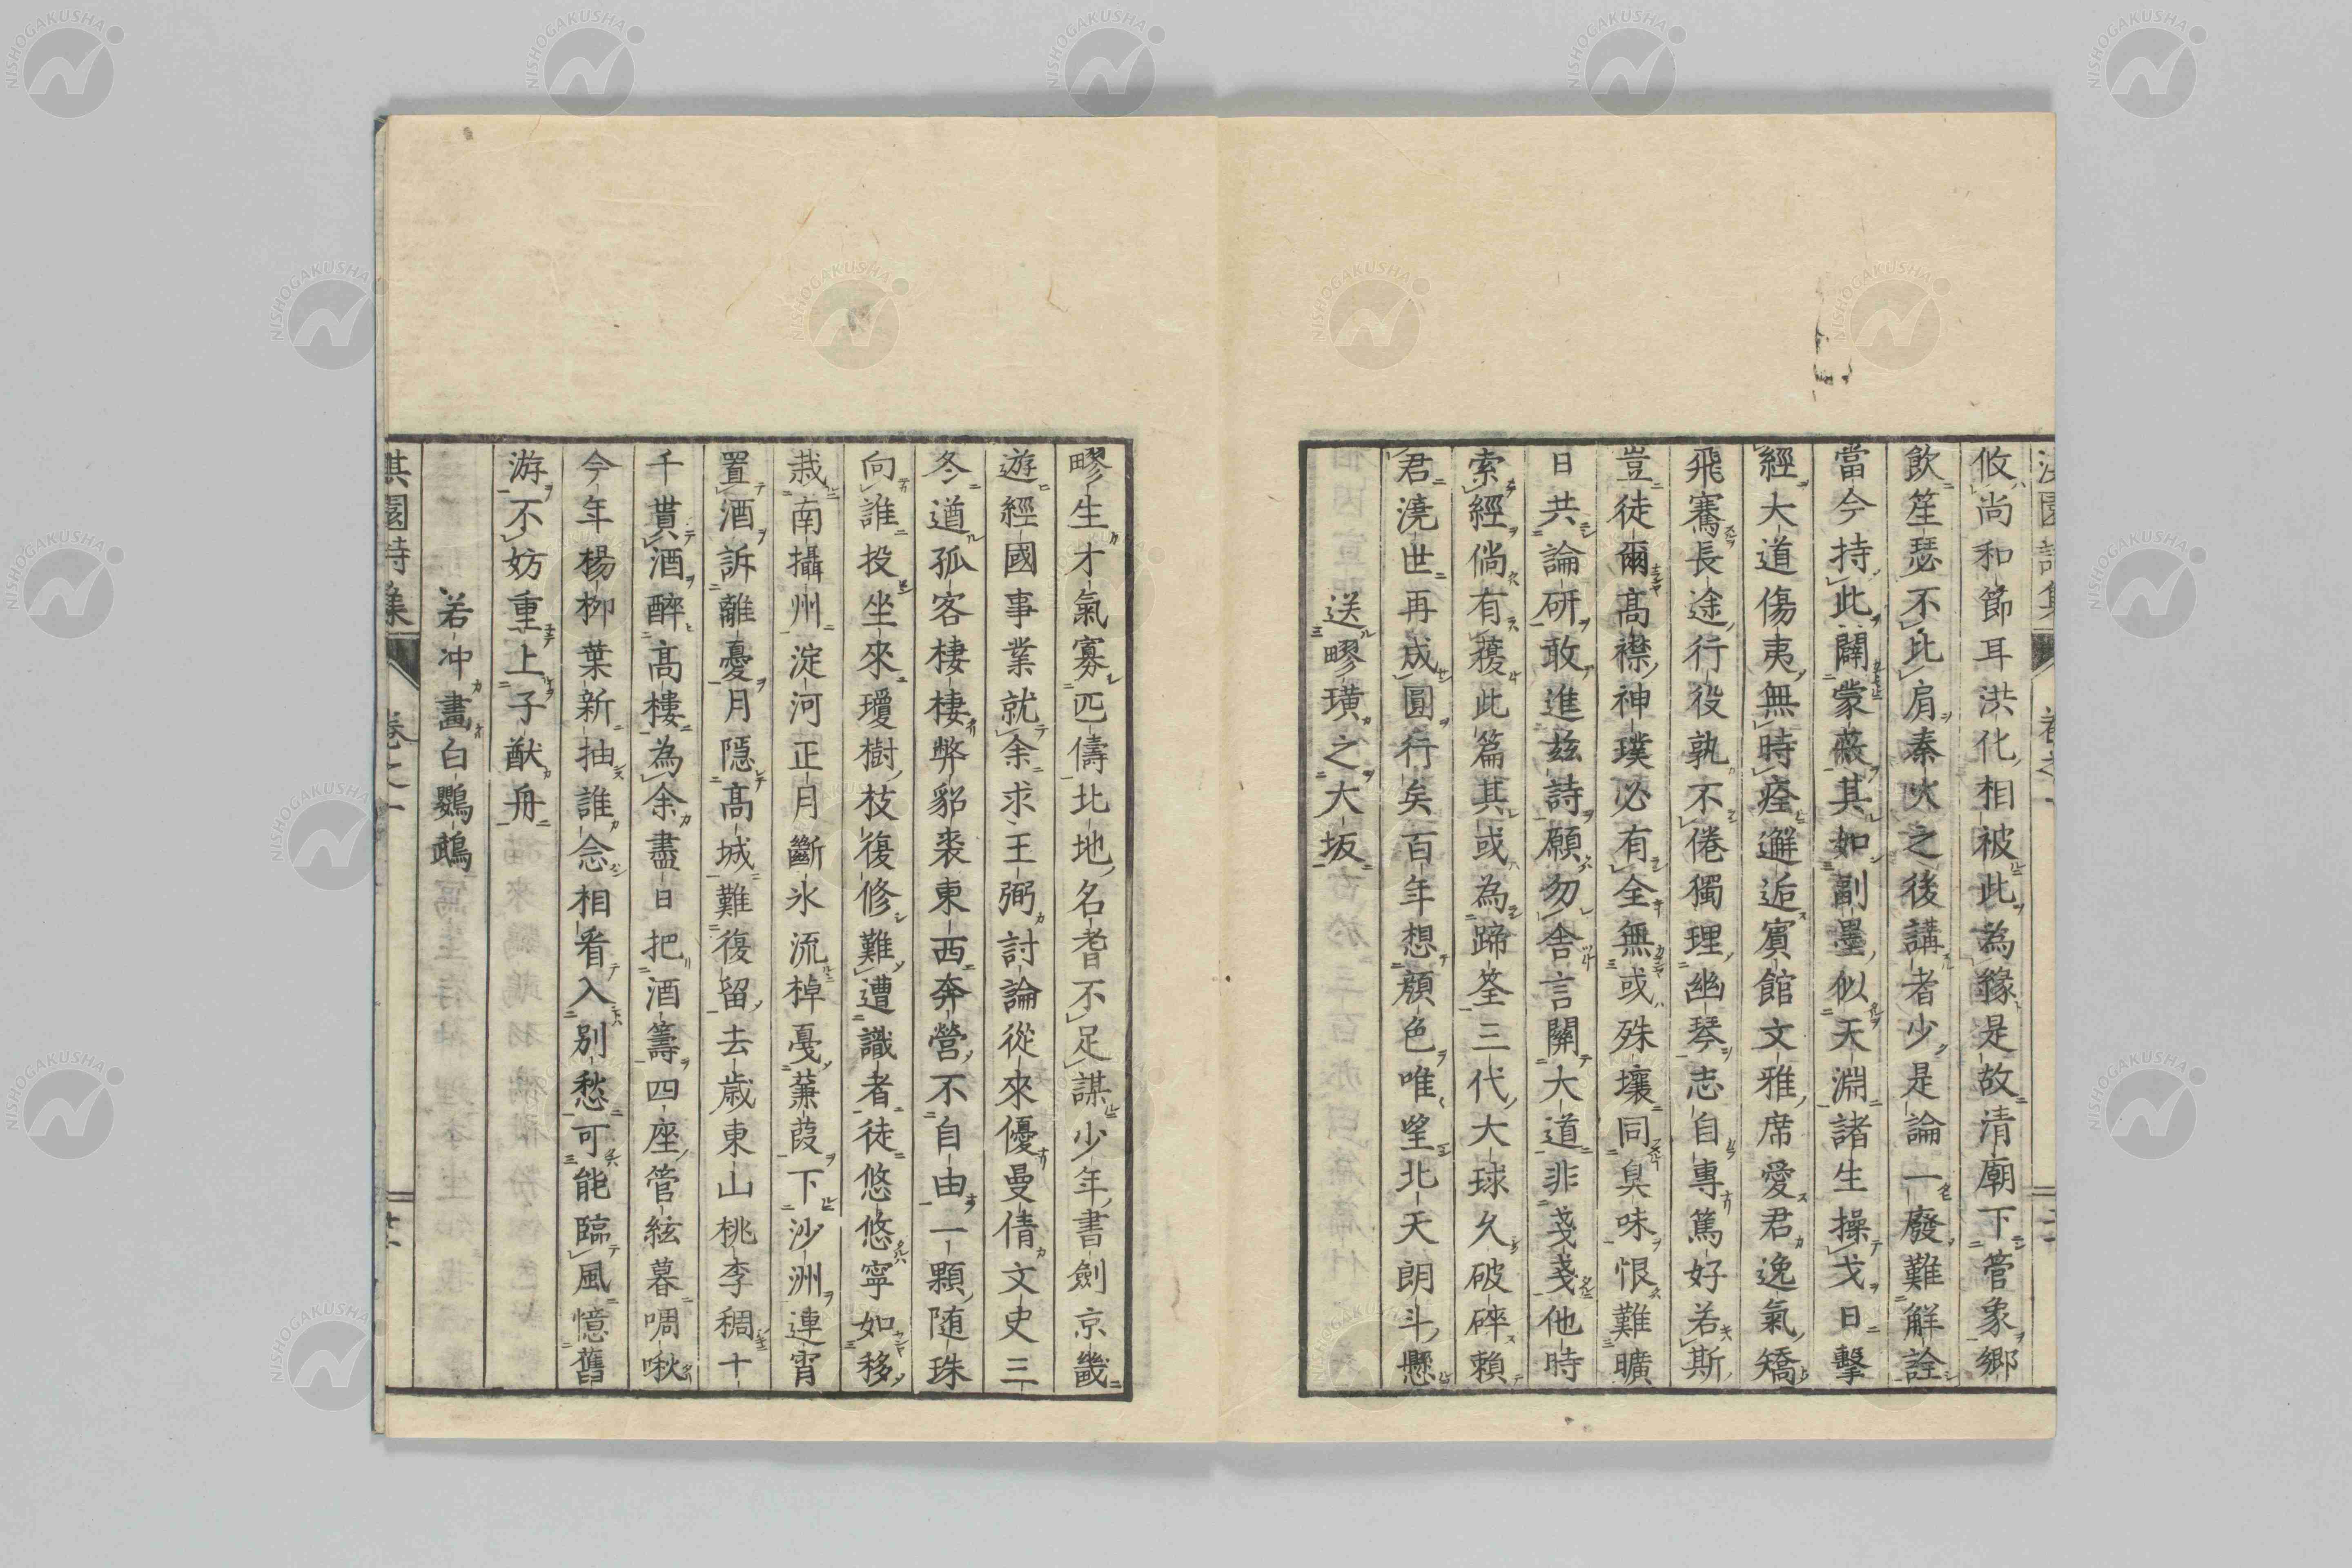 攸尚和節耳洪化相被此為緣是故清廟下管象鄉
飲笙瑟不比肩秦火之後講者少是論一廢難解詮
當今持此闢蒙蔽其如副墨似天淵諸生操戈日擊
經大道傷夷無時痊邂逅賓館文雅席愛君逸氣矯
飛騫長途行役孰不倦獨理幽琴志自專篤好若斯
豈徒爾高襟神璞必有全無或殊壤同臭味恨難曠
日共論研敢進茲詩願勿舍言關大道非戔戔他時
索經倘有䕶此篇其或為蹄筌三代大球久破碎賴
君澆世再成圓行矣百年想顏色唯望北天朗斗懸
送疁璜之大坂
疁生才氣寡匹儔北地名耆不足謀少年書劍京畿
遊經國事業就余求王弼討論從來優曼倩文史三
冬遒孤客棲棲弊貂裘東西奔營不自由一顆隨珠
向誰投坐來瓊樹枝復修難遭識者徒悠悠寧如移
栽南攝州淀河正月斷氷流棹戞蒹葭下沙洲連宵
置酒訴離憂月隱高城難復留去歲東山桃李稠十
千貰酒醉高樓為余盡日把酒籌四座管絃暮啁啾
今年楊柳葉新抽誰念相看入別愁可能臨風憶舊
游不妨重上子猷舟
若冲畫白鸚鵡
淇園詩集 卷之一